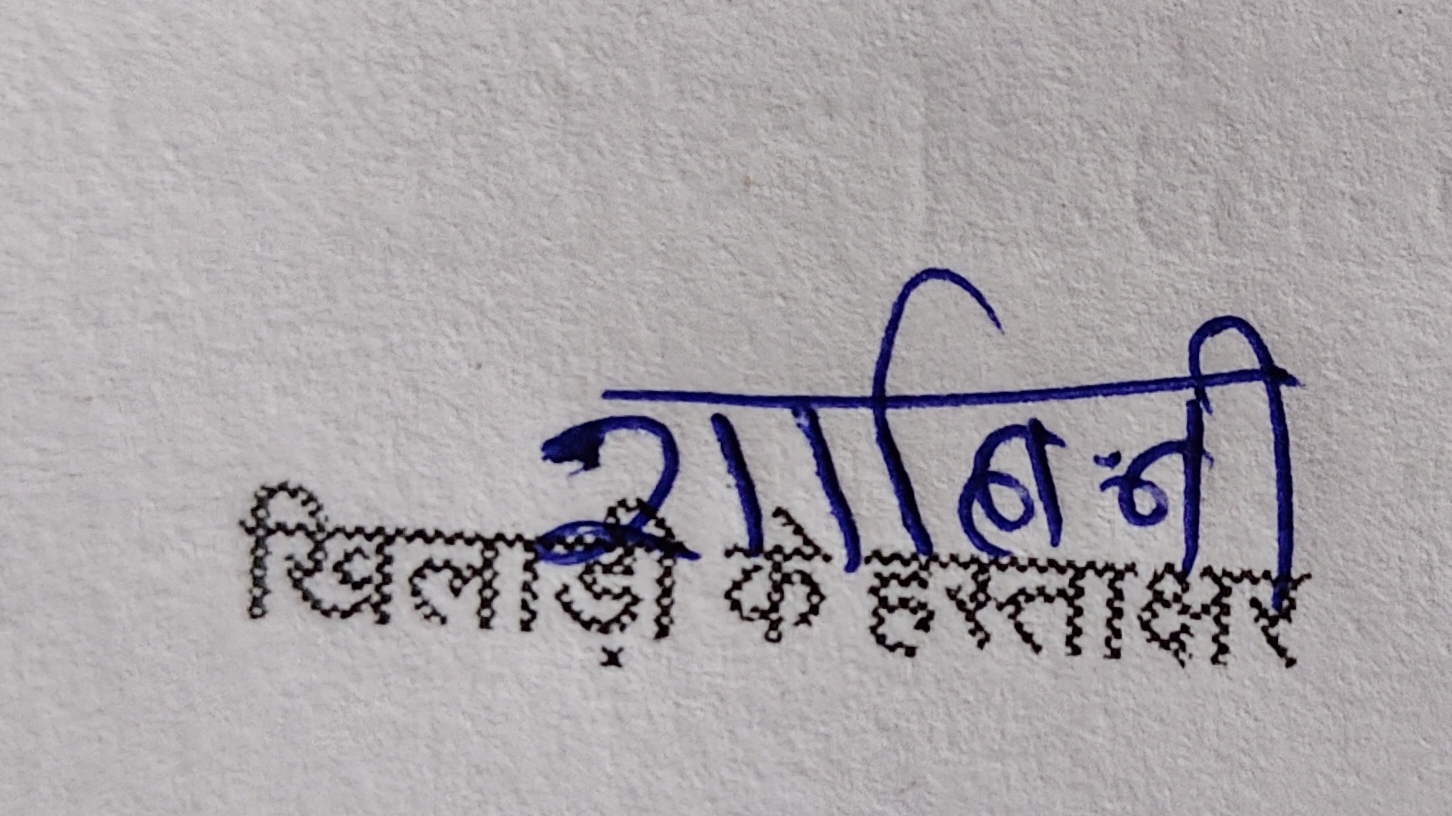 शालिनी
खिलाड़ी के हस्ताक्षर